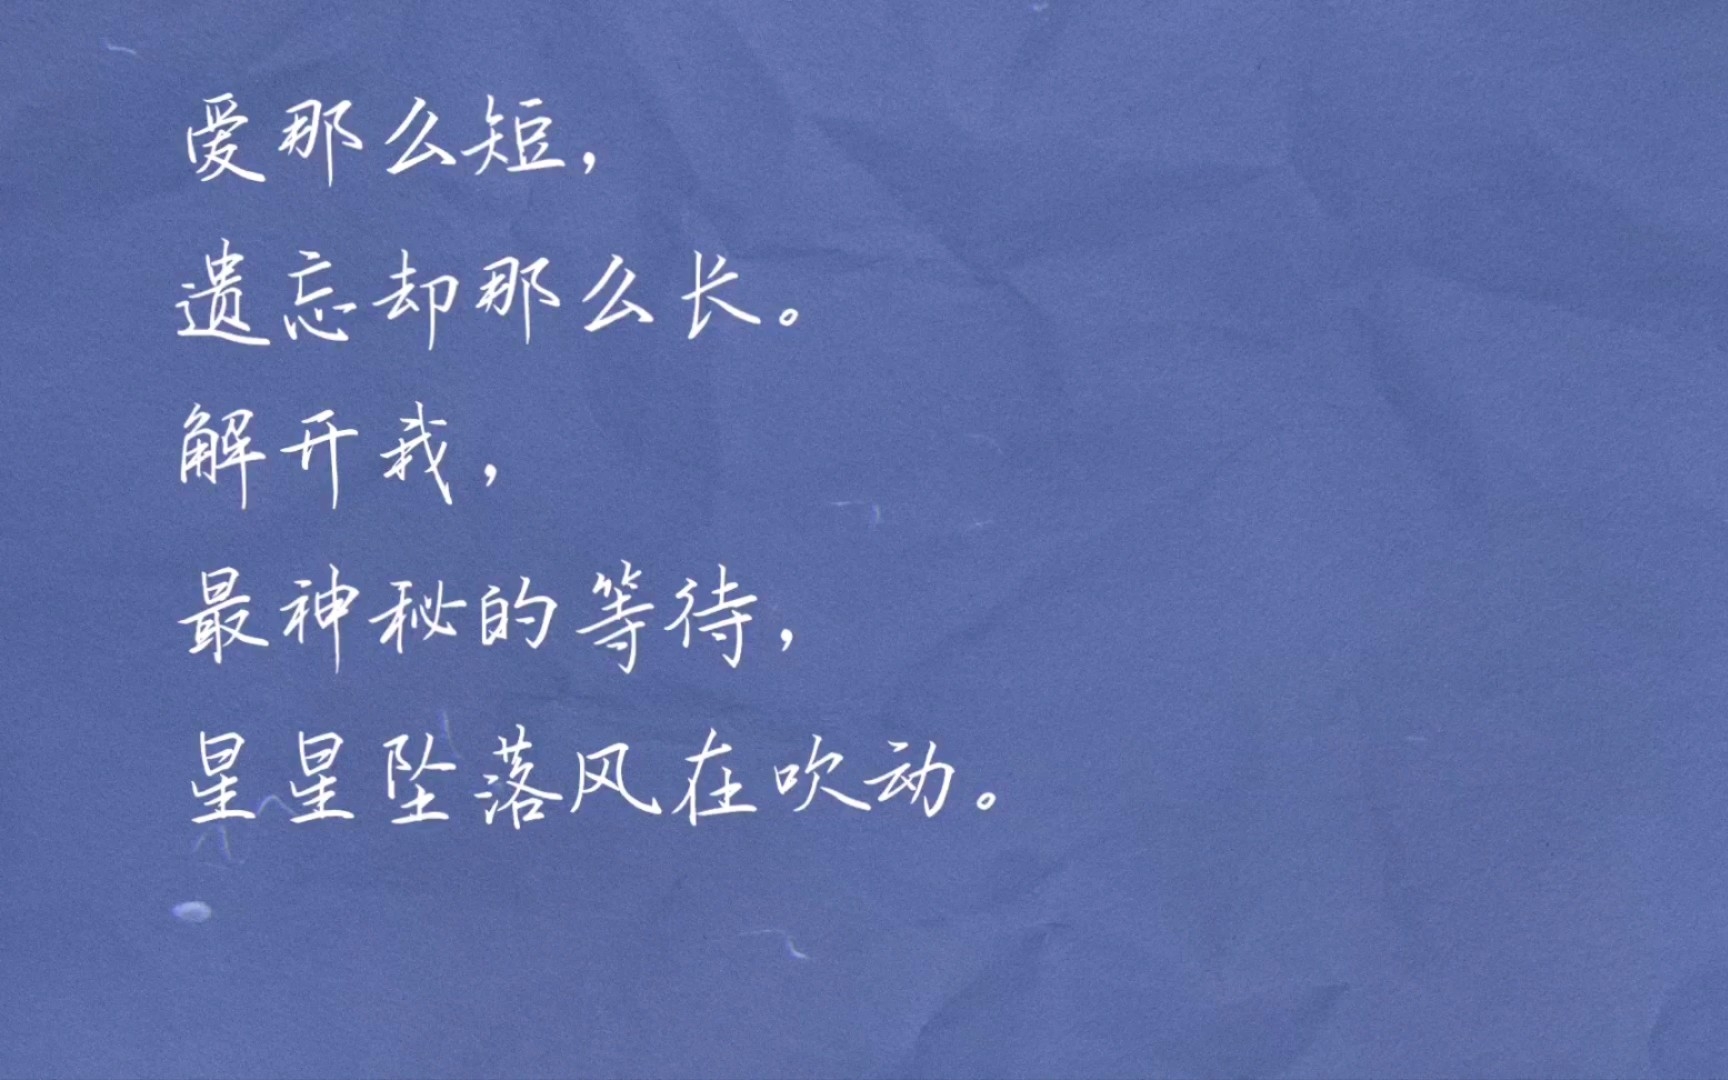 爱那么短，
遗忘却那么长。
解开我，
最神秘的等待，
星星坠落风在吹动。